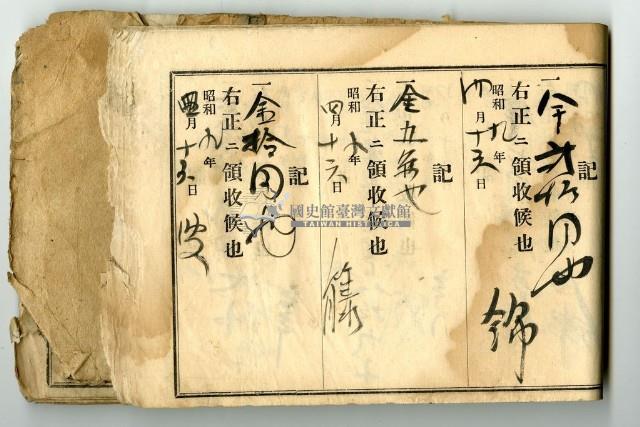 記
一金弐拾円也
右正ニ領收候也
昭和九年
四月十六日
錦
記
一金五円也
右正ニ領收候也
昭和九年
四月十六日
記
一金拾円也
右正ニ領收候也
昭和九年
四月十六日
國史館臺灣文獻館
TAIWAN HISTORICA